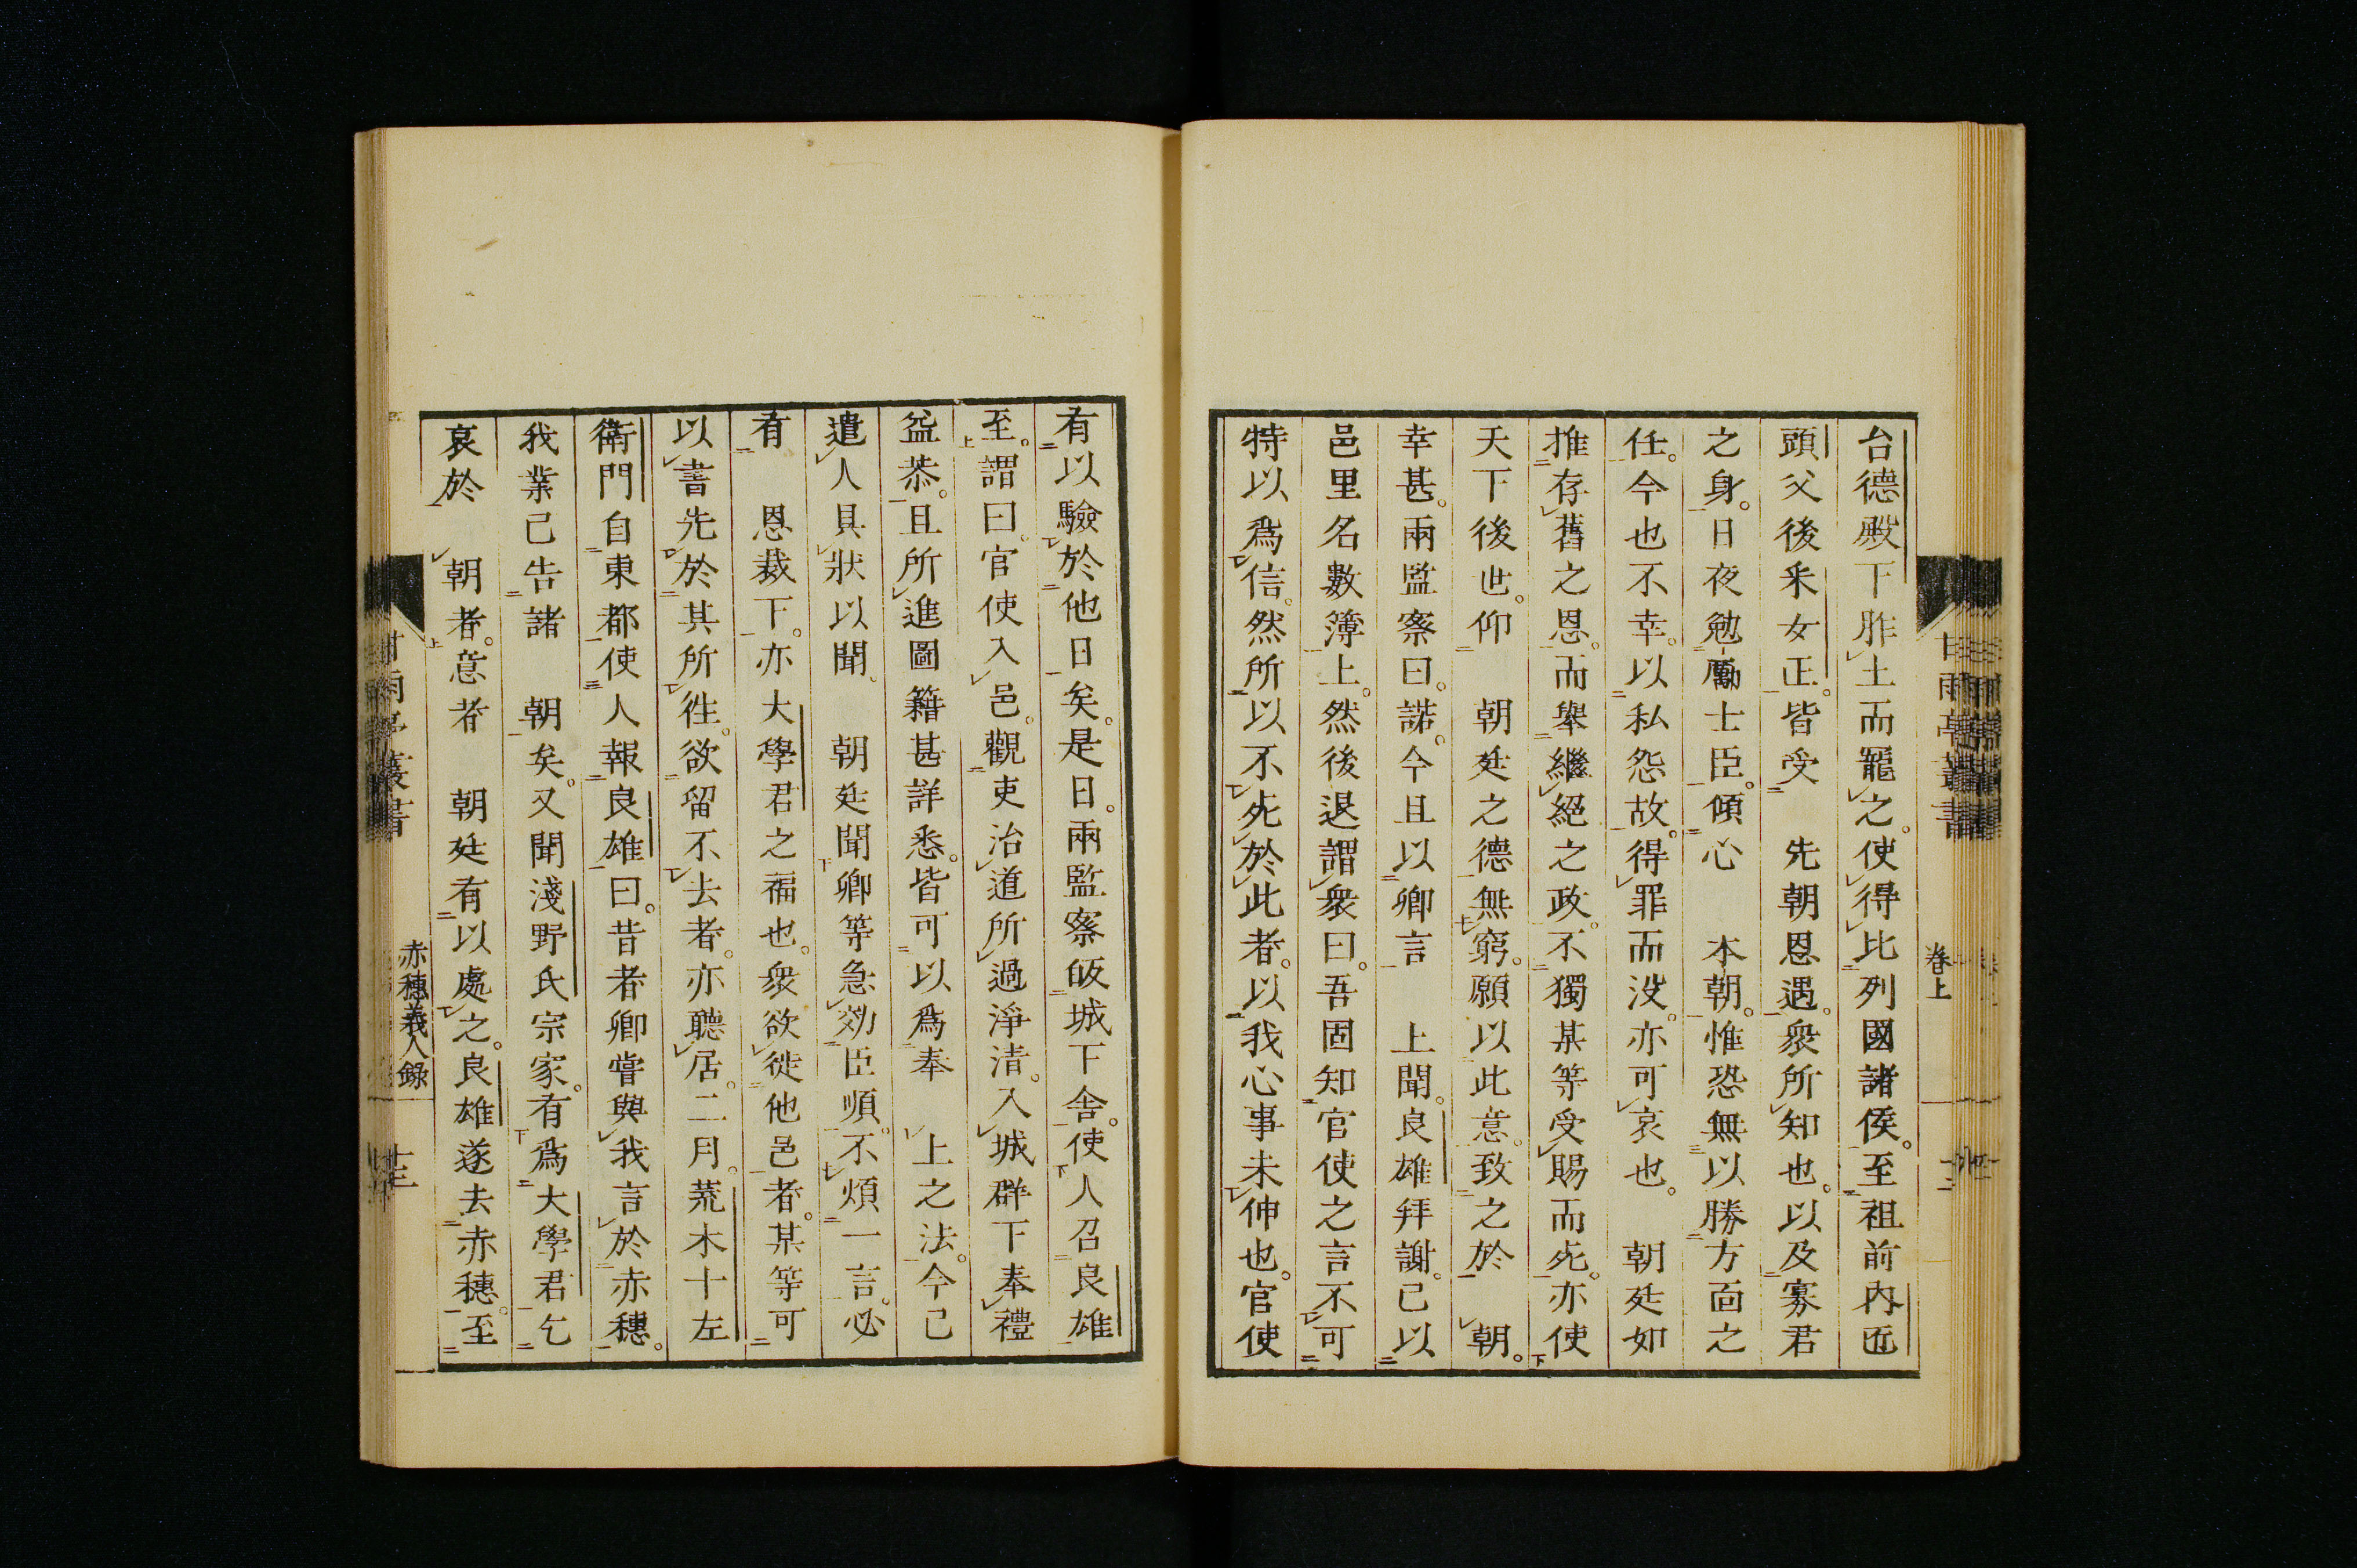 台德殿下胙土而寵之。使得比列國諸侯。至祖前内匠
頭父後釆女正。皆受　先朝恩遇。衆所知也。以及寡君
之身。日夜勉勵士臣。傾心　本朝。惟恐無以勝方面之
任。今也不幸。以私怨故。得罪而没。亦可哀也。　朝廷如
推存舊之恩。而舉繼絕之政。不獨某等受賜而死。亦使
天下後世。仰　朝廷之德無窮。願以此意。致之於　朝。
幸甚。兩監察曰。諾。今且以卿言　上聞。良雄拜謝。已以
邑里名數簿上。然後退謂衆曰。吾固知官使之言不可
特以爲信。然所以不死於此者。以我心事未伸也。官使
卷上
有以驗於他日矣。是日。兩監察皈城下舍。使人召良雄
至。謂曰。官使入邑。觀吏治道所過淨清。入城群下奉禮
益恭。且所進圖籍甚詳悉。皆可以爲奉　上之法。今已
遣人具狀以聞。　朝廷聞卿等急効臣順。不煩一言。必
有　恩裁下。亦大學君之福也。衆欲徙他邑者。某等可
以書先於其所徃。欲留不去者。亦聽居。二月。荒木十左
衛門自東都使人報良雄曰。昔者卿嘗與我言於赤穗。
我業已告諸　朝矣。又聞淺野氏宗家。有爲大學君乞
哀於　朝者。意者　朝廷有以處之。良雄遂去赤穗。至
赤穗義人錄